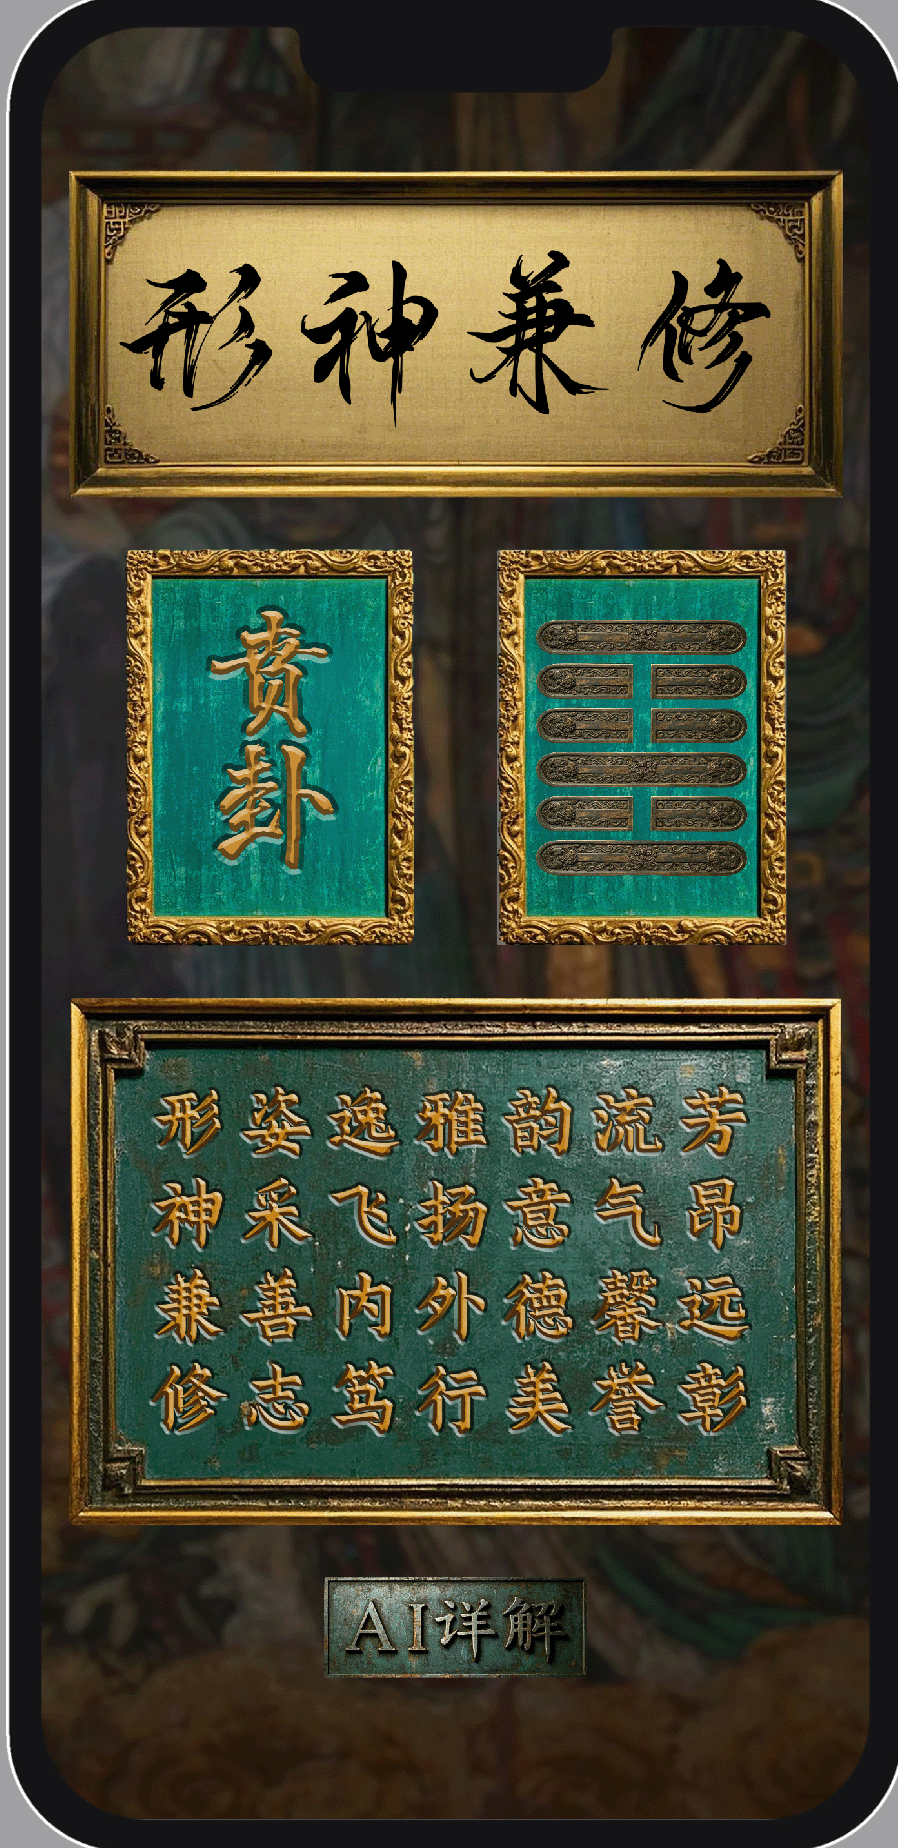 形神兼修
贲
卦
形姿逸雅韵流芳
神采飞扬意气昂
兼善内外德馨远
修志笃行美誉彰
AI详解